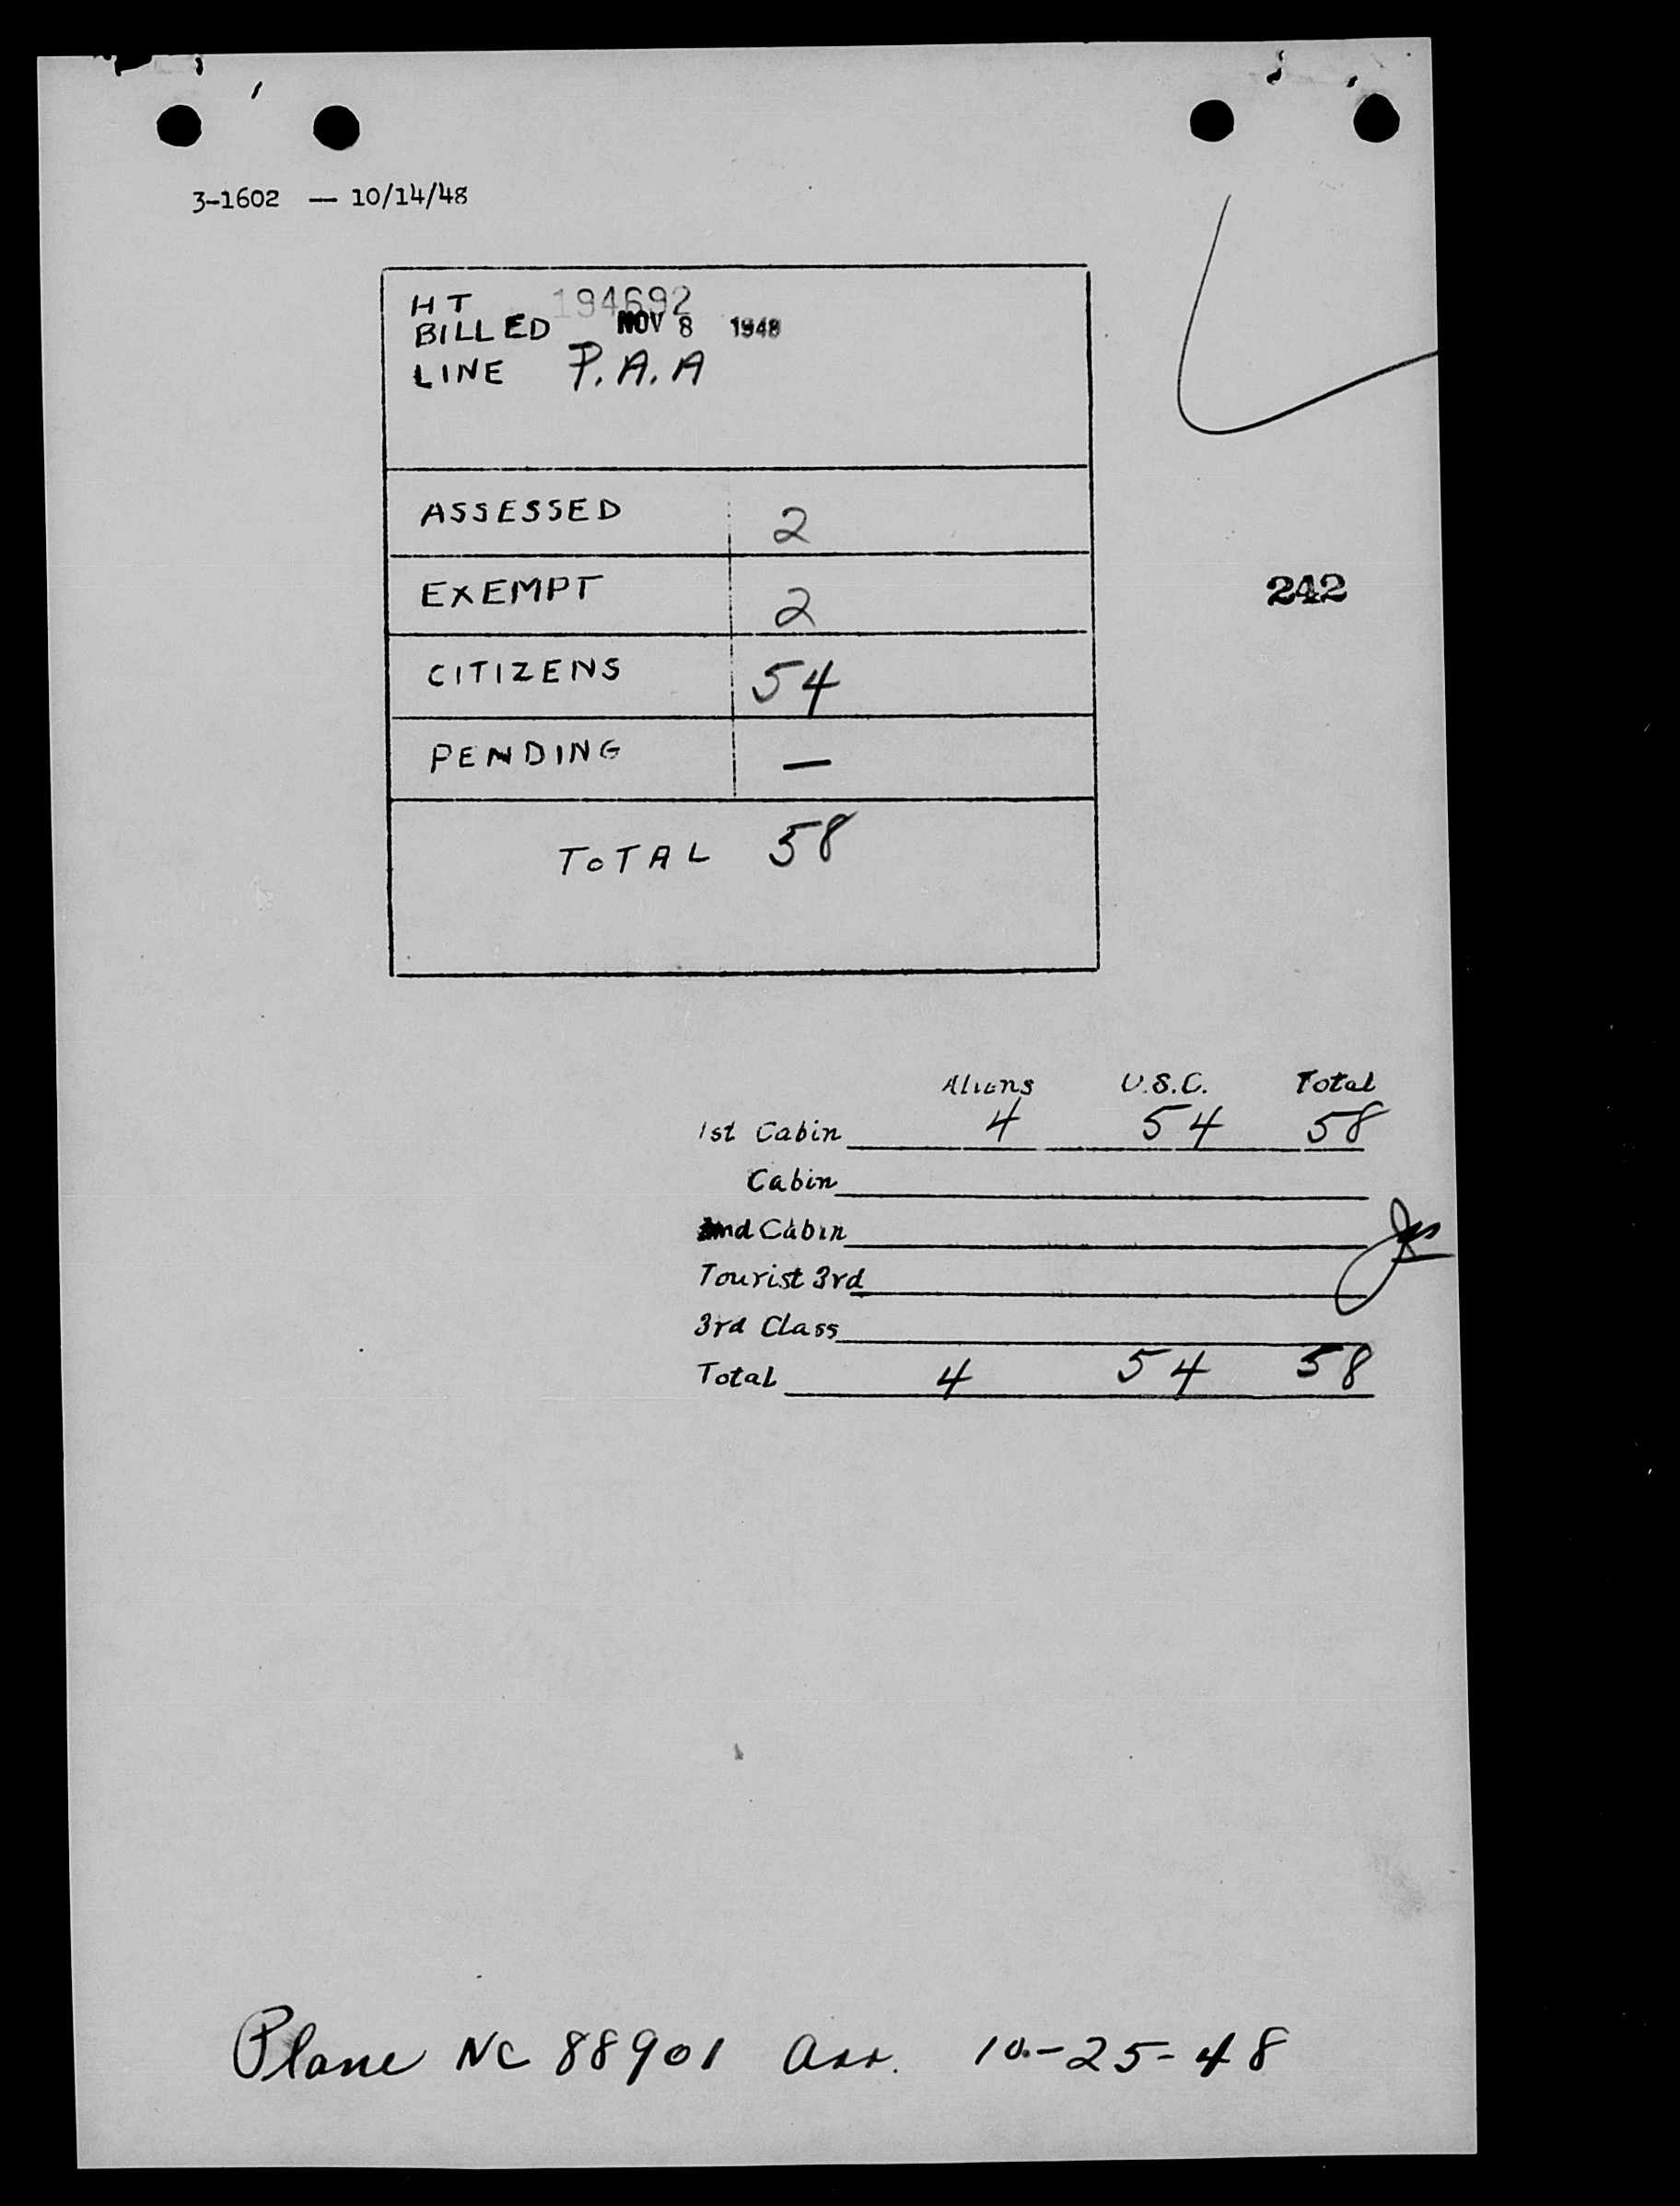 3-1602 — 10/14/48
HT 194692
BILLED NOV 8 1948
LINE P.A.A
ASSESSED 2
EXEMPT 2
242
CITIZENS 54
PENDING —
TOTAL 58
Aliens U.S.C. Total
1st Cabin 4 54 58
Cabin
2nd Cabin
Tourist 3rd
3rd Class
Total 4 54 58
Plane NC 88901 arr. 10-25-48